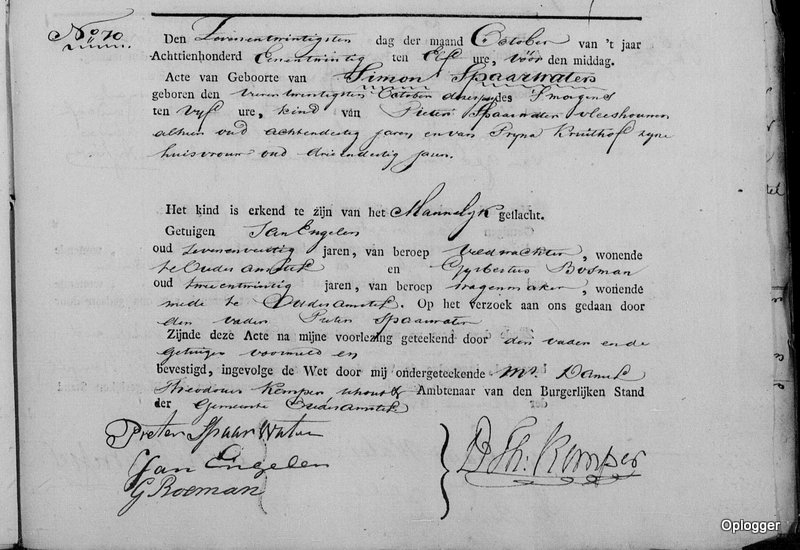 No. 70
Den Zevenentwintigsten dag der maand October van 't jaar
Achttienhonderd Eenentwintig ten Elf ure, vóór den middag.
Acte van Geboorte van Simon Spaarwater
geboren den October dezes des Smorgens
ten vyf ure, kind van Pieter Spaarwater vleeshouwer
alhier oud achtendertig jaren en van Tryna Kruithof zyne
huisvrouw oud drieendertig jaren.
Het kind is erkend te zijn van het Mannelyk geslacht.
Getuigen Jan Engelen
oud jaren, van beroep Veldwachter, wonende
te Ouder amstel en Gysbertus Bosman
oud tweeentwintig jaren, van beroep wagenmaker, wonende
mede te Ouderamstel. Op het verzoek aan ons gedaan door
den vader Pieter Spaarwater
Zijnde deze Acte na mijne voorlezing geteekend door den vader en de
getuigen voormeld en
bevestigd, ingevolge de Wet door mij ondergeteekende Mr. Daniel
Theodorus Kemper schout Ambtenaar van den Burgerlijken Stand
der Gemeente Ouderamstel
Pieter Spaar Water
Jan Engelen
G Bosman
D. Th: Kemper
Oplogger